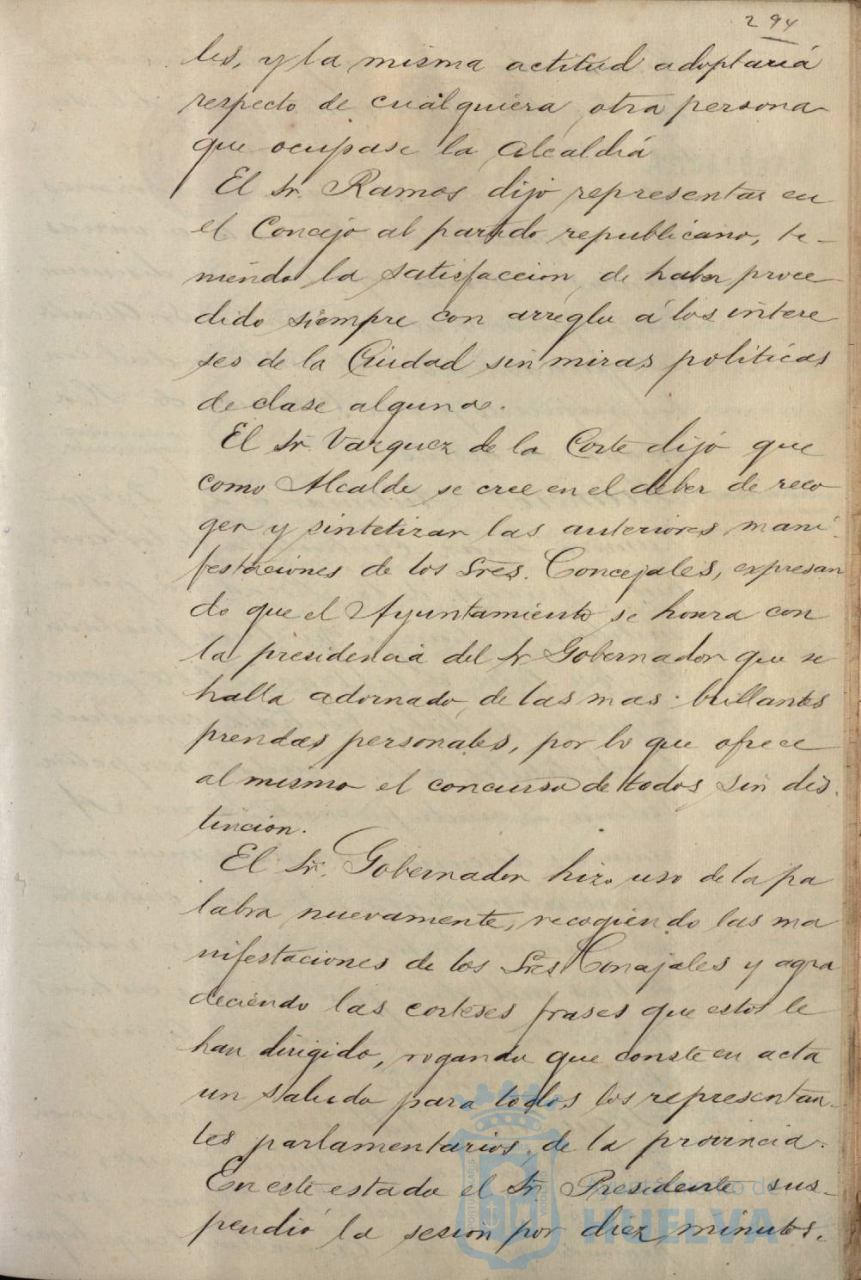 294
les, y la misma actitud adoptaria
respecto de cualquiera otra persona
que ocupase la Alcaldia
El Sr. Ramos dijo representar en
el Concejo al partido republicano, te-
niendo la satisfaccion de haber proce-
dido siempre con arreglo á los intere
ses de la Ciudad sin miras politicas
de clase alguna.
El Sr. Vazquez de la Corte dijo que
como Alcalde se cree en el deber de reco
ger y sintetizar las anteriores mani-
festaciones de los Sres. Concejales, expresan
do que el Ayuntamiento se honra con
la presidencia del Sr Gobernador que se
halla adornado de las mas brillantes
prendas personales, por lo que ofrece
al mismo el concurso de todos sin dis-
tincion.
El Sr. Gobernador hizo uso de la pa
labra nuevamente, recogiendo las ma
nifestaciones de los Sres Conajales y agra
deciendo las corteses frases que estos le
han dirigido, rogando que conste en acta
un saludo para todos los representan-
tes parlamentarios de la provincia.
En este estado el Sr Presidente sus-
pendió la sesion por diez minutos.
HUELVA